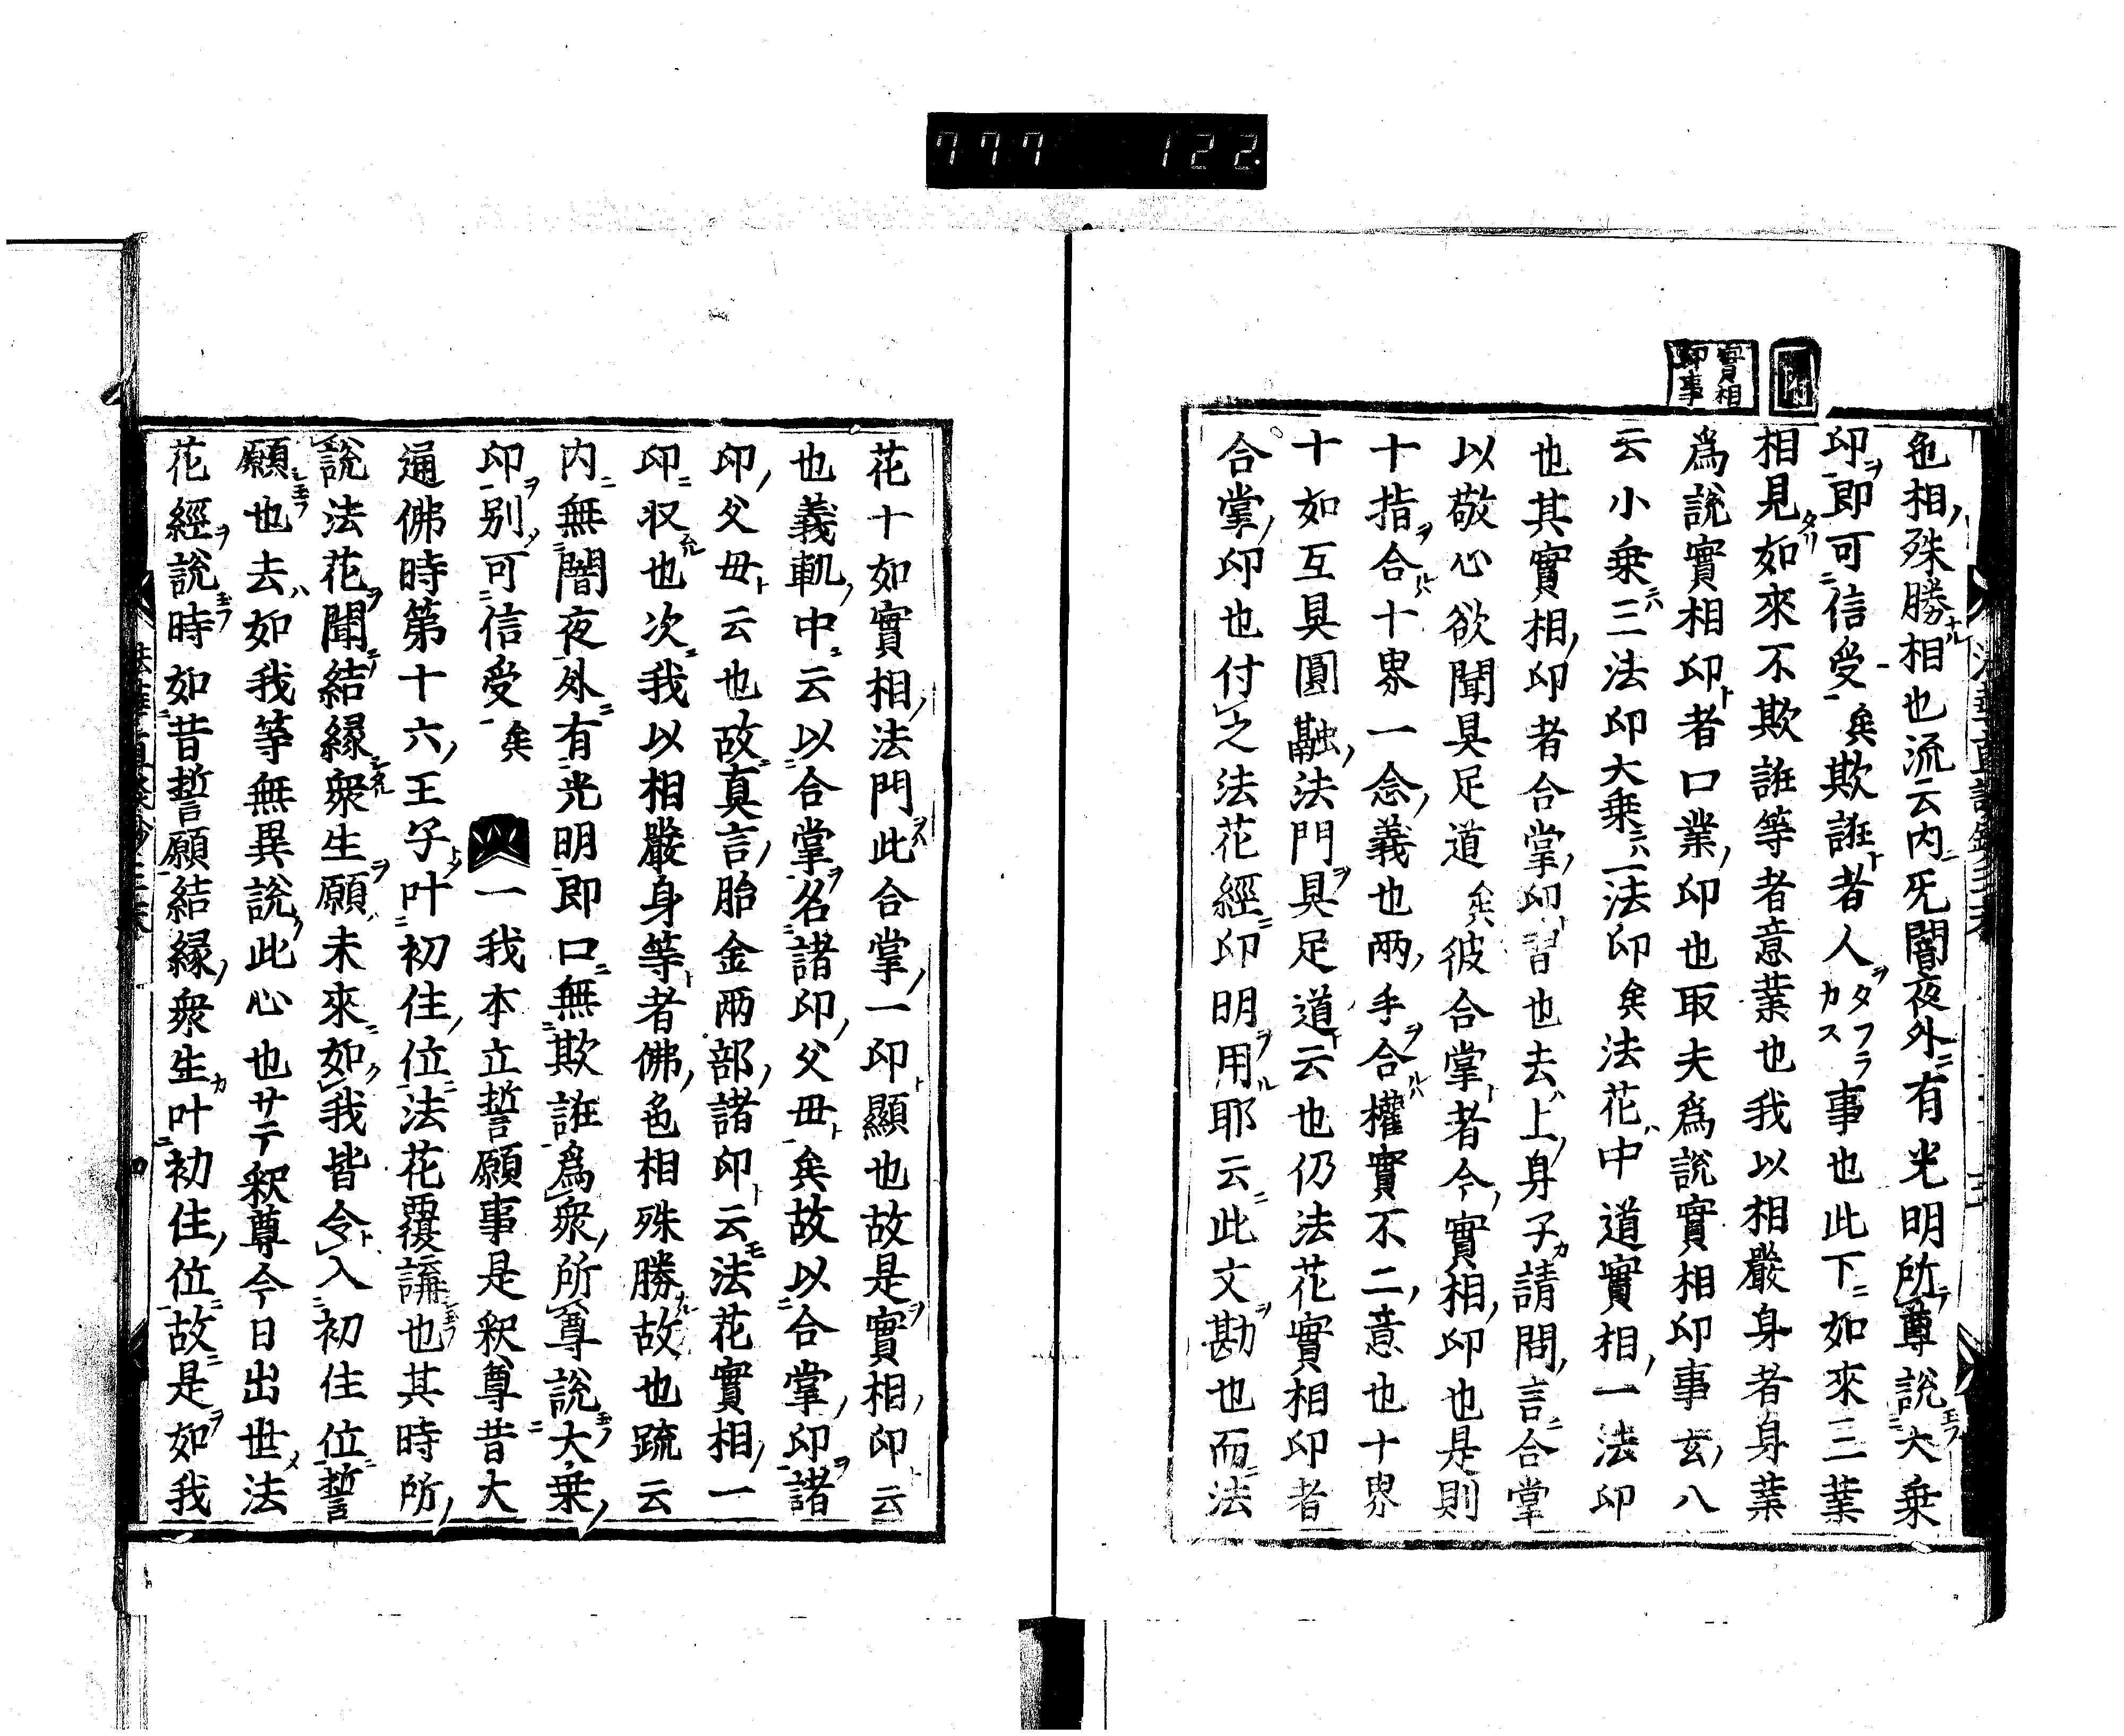 777 122
實相
印事
色相殊勝相也流云内无闇夜外有光明所尊説大乗
印即可信受矣欺誑者人タフラカス事也此下如來三業
相見如來不欺誑等者意業也我以相嚴身者身業
爲説實相印者口業印也取夫爲説實相印事玄八
云小乗三法印大乗一法印矣法花中道實相一法印
也其實相印者合掌印習也去上身子請問言合掌
以敬心欲聞具足道矣彼合掌者今實相印也是則
十指合十界一念義也兩手合權實不二意也十界
十如互具圓融法門具足道云也仍法花實相印者
合掌印也付之法花經印明用耶云此文勘也而法
花十如實相法門此合掌一印顯也故是實相印云
也義軌中云以合掌名諸印父母矣故以合掌印諸
印父母云也故真言胎金兩部諸印云法花實相一
印収也次我以相嚴身等者佛色相殊勝故也疏云
内無闇夜外有光明即口無欺誑爲衆所尊説大乗
印別可信受矣 一我本立誓願事是釈尊昔大
通佛時第十六王子叶初住位法花覆講也其時所
説法花聞結縁衆生願未來如我皆令入初住位誓
願也去如我等無異説此心也サテ釈尊今日出世法
花經説時如昔誓願結縁衆生叶初住位故是如我